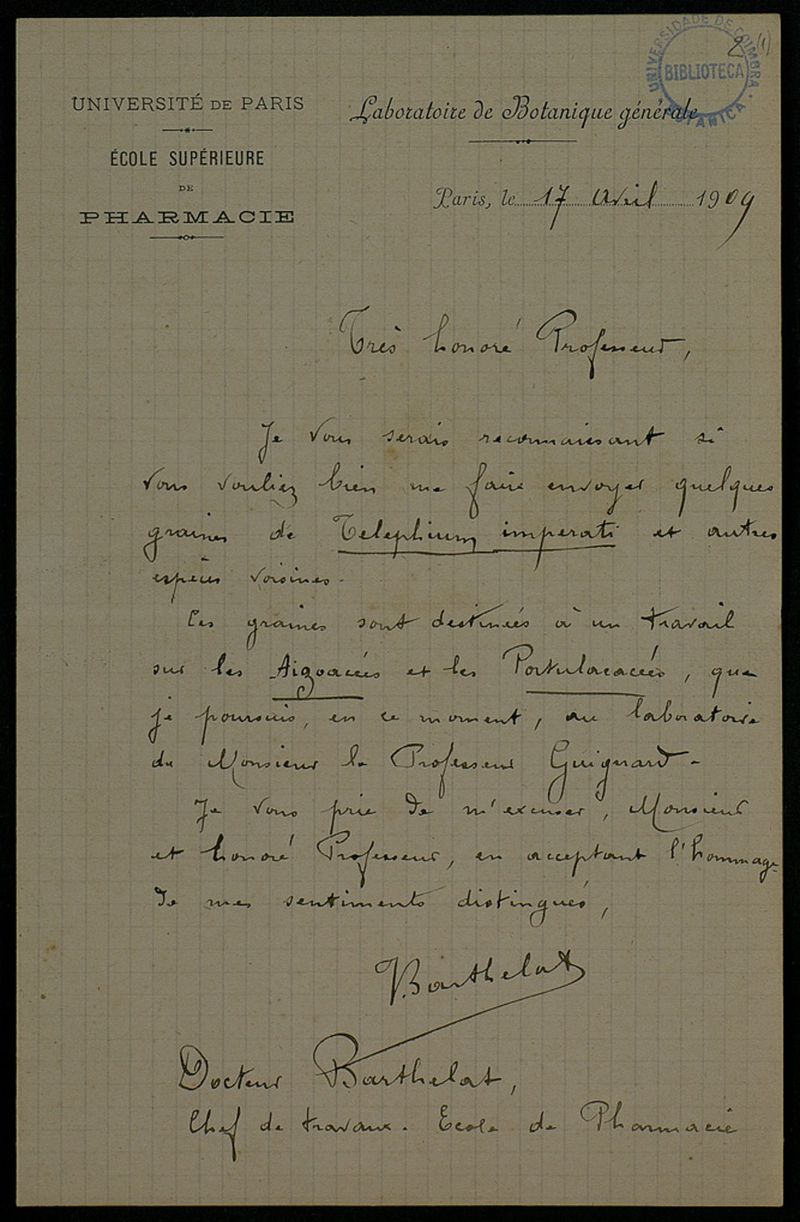 2 (1)
UNIVERSIDADE DE COIMBRA
BIBLIOTECA
BOTANICA
UNIVERSITÉ DE PARIS
ÉCOLE SUPÉRIEURE
DE
PHARMACIE
Laboratoire de Botanique générale
Paris, le 17 Avril 1909
Très honoré Professeur,
Je vous serais reconnaissant si
vous vouliez bien me faire envoyer quelques
graines de Telephium imperati et autres
espèces voisines.
Ces graines sont destinées à un travail
sur les Aizoacées et les Portulacacées, que
je poursuis, en ce moment, au laboratoire
de Monsieur le Professeur Guignard.
Je vous prie de m'excuser, Monsieur
et honoré Professeur, en acceptant l'hommage
de mes sentiments distingués,
Barthelat
Docteur Barthelat,
Chef de travaux. Ecole de Pharmacie